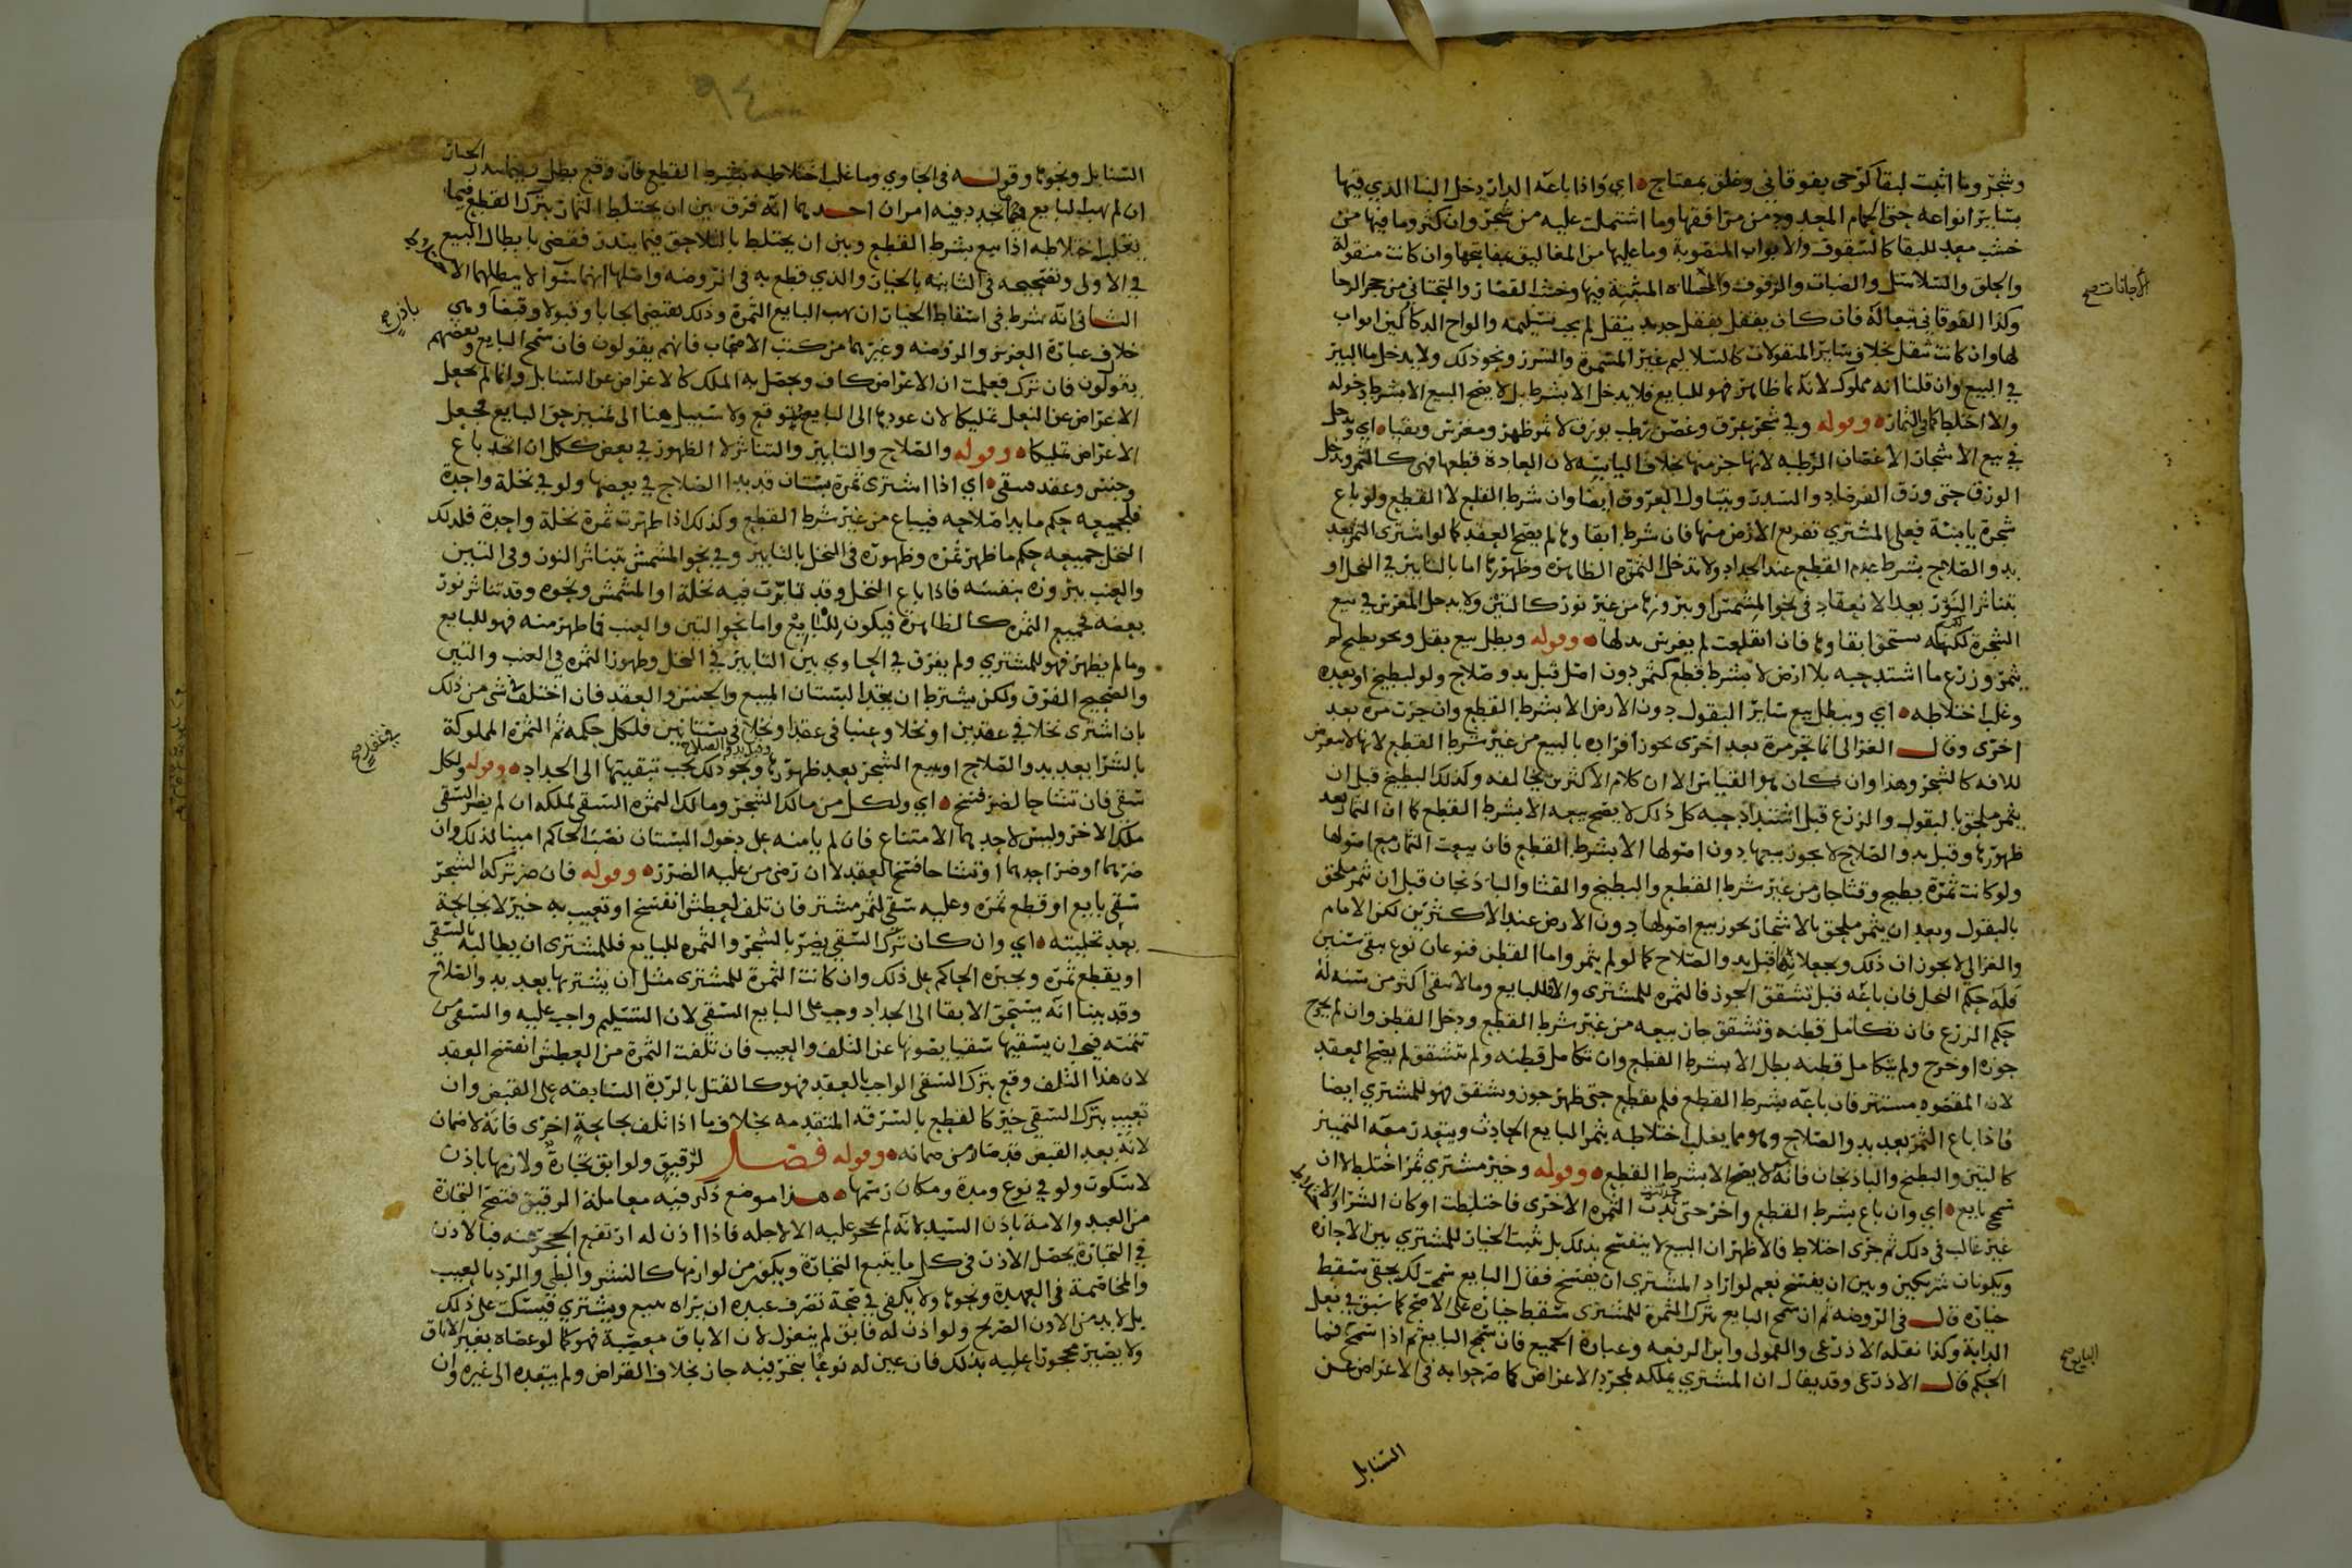 وشجر وما اثبت لبقا كرحى بفوقاني وغلق بمفتاح اي واذا باعه الدار دخل البنا الذي فيها
بسائر انواعه حتى الحمام المعدود من مرافقها وما اشتملت عليه من شجر وان كثر وما فيها من
خشب معد للبقا كالسقوف والابواب المنصوبة وما عليها من المغاليق بمفاتيحها وان كانت منقولة
والحلق والسلاسل والضبات والرفوف المثبتة فيها وخشب القصار والتحتاني من حجر الرحا
الاجانات صح
وكذا الفوقاني تبعا له فان كان يقفل بقفل حديد ينقل لم يجب تسليمه والواح الدكاكين ابواب
لها وان كانت تنقل بخلاف سائر المنقولات كالسلاليم غير المسمرة والسرر ونحو ذلك ولا يدخل ما البئر
في البيع وان قلنا انه مملوك لانه نما ظاهر فهو للبايع فلا يدخل الا بشرط بل لا يصح البيع الا بشرط دخوله
والا اختلطا كما في الثمار وقوله وفي شجر عرق وغصن رطب بورق لا ثمر ظهر ومغرس وبقيا اي ويدخل
في بيع الاشجار الاغصان الرطبة لانها جزء منها بخلاف اليابسة لان العادة قطعها فهي كالثمر ويدخل
الورق حتى ورق الفرصاد والسدر ويتناول العروق ايضا وان شرط القلع لا القطع ولو باع
شجرة يابسة فعلى المشتري تفريغ الارض منها فان شرط ابقاوها لم يصح العقد كما لو اشترى الثمر بعد
بدو الصلاح بشرط عدم القطع عند الجداد ولا تدخل الثمرة الظاهرة وظهورها اما بالتابير في النخل او
بتناثر النور بعد الانعقاد في نحو المشمش او ببروزها من غير نور كالتين ولا يدخل المغرس في بيع
الشجرة لكنه يستحق ابقاوها فان انقلعت لم يغرس بدلها وقوله وبطل بيع بقل ونحو بطيخ لم
يثمر وزرع ما اشتد حبه بلا ارض لا بشرط قطع كثمر دون اصل قبل بدو صلاح ولو لبطيخ او بعده
وغلب اختلاطه اي وبطل بيع سائر البقول دون الارض الا بشرط القطع وان جزت مرة بعد
اخرى وقال الغزالى انما تجز مرة بعد اخرى يجوز افراده بالبيع من غير شرط القطع لانها لا تتعرض
للافه كالشجر وهذا وان كان هو القياس الا ان كلام الاكثرين يخالفه وكذلك البطيخ قبل ان
يثمر ملحق بالبقول والزرع قبل اشتداد حبه كل ذلك لا يصح بيعه الا بشرط القطع كما ان الثمار بعد
ظهورها وقبل بدو الصلاح لا يجوز بيعها دون اصولها الا بشرط القطع فان بيعت الثمار مع اصولها
ولو كانت ثمرة بطيخ وقثا جاز من غير شرط القطع والبطيخ والقثا والباذنجان قبل ان تثمر ملحق
بالبقول وبعد ان يثمر ملحق بالاشجار يجوز بيع اصولها دون الارض عند الاكثرين لكن الامام
والغزالي لا يجوزان ذلك ويجعلانه قبل بدو الصلاح كما لو لم يثمر واما القطن فنوعان نوع يبقى سنين
فله حكم النخل فان باعه قبل تشقق الجوز فالثمره للمشترى والا فللبايع وما لا يبقى اكثر من سنه له
حكم الزرع فان تكامل قطنه وتشقق جاز بيعه من غير شرط القطع ودخل القطن وان لم يخرج
جوزه او خرج ولم يتكامل قطنه بطل الا بشرط القطع وان تكامل قطنه ولم يتشقق لم يصح العقد
لان المقصود مستتر فان باعه بشرط القطع فلم يقطع حتى ظهر جوز وتشقق فهو للمشتري ايضا
فاذا باع الثمر بعد بدو الصلاح وهو مما يغلب اختلاطه بثمر البايع الحادث ويتعذر معه التمييز
كالتين والبطيخ والباذنجان فانه لا يصح الا بشرط القطع وقوله وخير مشتري ثمر اختلط لا ان
سمح بايع اي وان باع بشرط القطع واخر حتى بدت الثمره الاخرى فاختلطت او كان الشراء والاختلاط
غير غالب في ذلك ثم جرى اختلاط فالاظهر ان البيع لا ينفسخ بذلك بل يثبت الخيار للمشتري بين الاجازه
ويكونان شريكين وبين ان يفسخ نعم لو اراد المشتري ان يفسخ فقال البايع سمحت لك بحقي سقط
خياره قال في الروضه ثم ان سمح البايع بترك الثمرة للمشترى سقط خياره على الاصح كما سبق في نعل
الدابة وكذا نقله الاذرعي والقمولي وابن الرفعه وعبارة الجميع فان سمح البايع ثم اذا سمح فما
البايع صح
الحكم قال الاذرعي وقد يقال ان المشتري يملكه بمجرد الاعراض كما صرحوا به في الاعراض عن
السنابل
٩٤
السنابل ونحوها وقوله في الحاوي وما غلب اختلاطه بشرط القطع فان وقع بطل وفيما يندر الخيار
ان لم يهب البايع فيما تجدد فيه امران احدهما انه فرق بين ان يختلط الثمار بترك القطع فيما
يغلب اختلاطه اذا بيع بشرط القطع وبين ان يختلط بالتلاحق فيما يندر فقضى بابطال البيع
في الاولى وتصحيحه في الثانيه بالخيار والذي قطع به في الروضه واصلها انهما سوا لا يبطلهما الاختلاط
الثاني انه شرط في اسقاط الخيار ان يهب البايع الثمرة وذلك يقتضي ايجابا وقبولا وقبضا وهي
خلاف عبارة العزيز والروضه وغيرهما من كتب الاصحاب فانهم يقولون فان سمح البايع وبعضهم
يقولون فان ترك فعلمت ان الاعراض كاف ويحصل به الملك كالاعراض عن السنابل وانما لم يجعل
الاعراض عن النعل تمليكا لان عودها الى البايع متوقع ولا سبيل هنا الى تمييز حق البايع فجعل
الاعراض تمليكا وقوله والصلاح والتابير والتناثر لا الظهور في بعض ككل ان اتحد باع
وجنس وعقد سقى اي اذا اشترى ثمرة بستان قد بدا الصلاح في بعضها ولو في نخلة واحدة
فلجميعه حكم ما بدا صلاحه فيباع من غير شرط القطع وكذلك اذا ظهرت ثمرة نخلة واحدة فلذلك
النخل جميعه حكم ما ظهر ثمره وظهوره في النخل بالتابير وفي نحو المشمش بتناثر النور وفي التين
والعنب ببروزه بنفسه فاذا باع النخل وقد تابرت فيه نخلة او المشمش ونحوه وقد تناثر نور
بعضه فجميع الثمره كالظاهرة فيكون للبايع واما نحو التين والعنب فما ظهر منه فهو للبايع
وما لم يظهر فهو للمشتري ولم يفرق في الحاوي بين التابير في النخل وظهور الثمره في العنب والتين
والصحيح الفرق ولكن يشترط ان يتحد البستان المبيع والجنس والعقد فان اختلف شي من ذلك
بان اشترى نخلا في عقدين او نخلا وعنبا في عقد او نخلا في بستانين فلكل حكمه ثم الثمرة المملوكة
بالشرا بعد بدو الصلاح او ببيع الشجر بعد ظهورها وقبل بدو الصلاح ونحو ذلك يجب تبقيتها الى الجداد وقوله ولكل
سقى فان تشاحا لضر فسخ اي ولكل من مالك الشجر ومالك الثمرة السقي لملكه ان لم يضر السقي
ملك الاخر وليس لاحدهما الامتناع فان لم يامنه على دخول البستان نصب الحاكم امينا لذلك وان
ضرهما او ضر احدهما وتشاحا فسخ العقد لا ان رضي من عليه الضرر وقوله فان ضر ترك الشجر
سقى بايع او قطع ثمره وعليه سقى لثمر مشتر فان تلف لعطش انفسخ او تعيب به خير لا بجائحة
بعد تخليته اي وان كان ترك السقي يضر بالشجر والثمره للبايع فللمشترى ان يطالبه بالسقي
او يقطع ثمره ويجبره الحاكم على ذلك وان كانت الثمرة للمشترى مثل ان يشتريها بعد بدو الصلاح
وقد بينا انه يستحق الابقا الى الجداد وجب على البايع السقي لان التسليم واجب عليه والسقي من
تتمته فيجب ان يسقيها سقيا يصونها عن التلف والعيب فان تلفت الثمرة من العطش انفسخ العقد
لان هذا التلف وقع بترك السقي الواجب بالعقد فهو كالقتل بالردة السابقه على القبض وان
تعيب بترك السقي خير كالقطع بالسرقه المتقدمه بخلاف ما اذا تلف بجائحة اخرى فانه لا ضمان
لانه بعد القبض قد صار من ضمانه وقوله فصل للرقيق ولو ابق تجارة ولازمها باذن
لا سكوت ولو في نوع ومدة ومكان رسمها هذا موضع ذكر فيه معاملة الرقيق فتصح التجارة
من العبد والامة باذن السيد لانه لم يحجر عليه الا لاجله فاذا اذن له ارتفع الحجر عنه فبالاذن
في التجارة يحصل الاذن في كل ما يتبع التجارة ويكون من لوازمها كالنشر والطي والرد بالعيب
والمخاصمة في العهدة ونحوها ولا يكفي في صحة تصرف عبده ان يراه يبيع ويشتري فيسكت على ذلك
بل لا بد من الاذن الصريح ولو اذن له فابق لم ينعزل لان الاباق معصية فهو كما لو عصاه بغير الاباق
ولا يصير محجورا عليه بذلك فان عين له نوعا يتجر فيه جاز بخلاف القراض ولم يتعده الى غيره وان